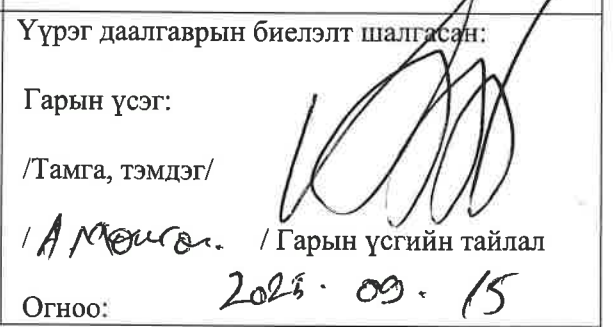 Үүрэг даалгаврын биелэлт шалгасан:
Гарын үсэг:
/Тамга, тэмдэг/
/ А / Гарын үсгийн тайлал
Огноо: 2025. 09. 15